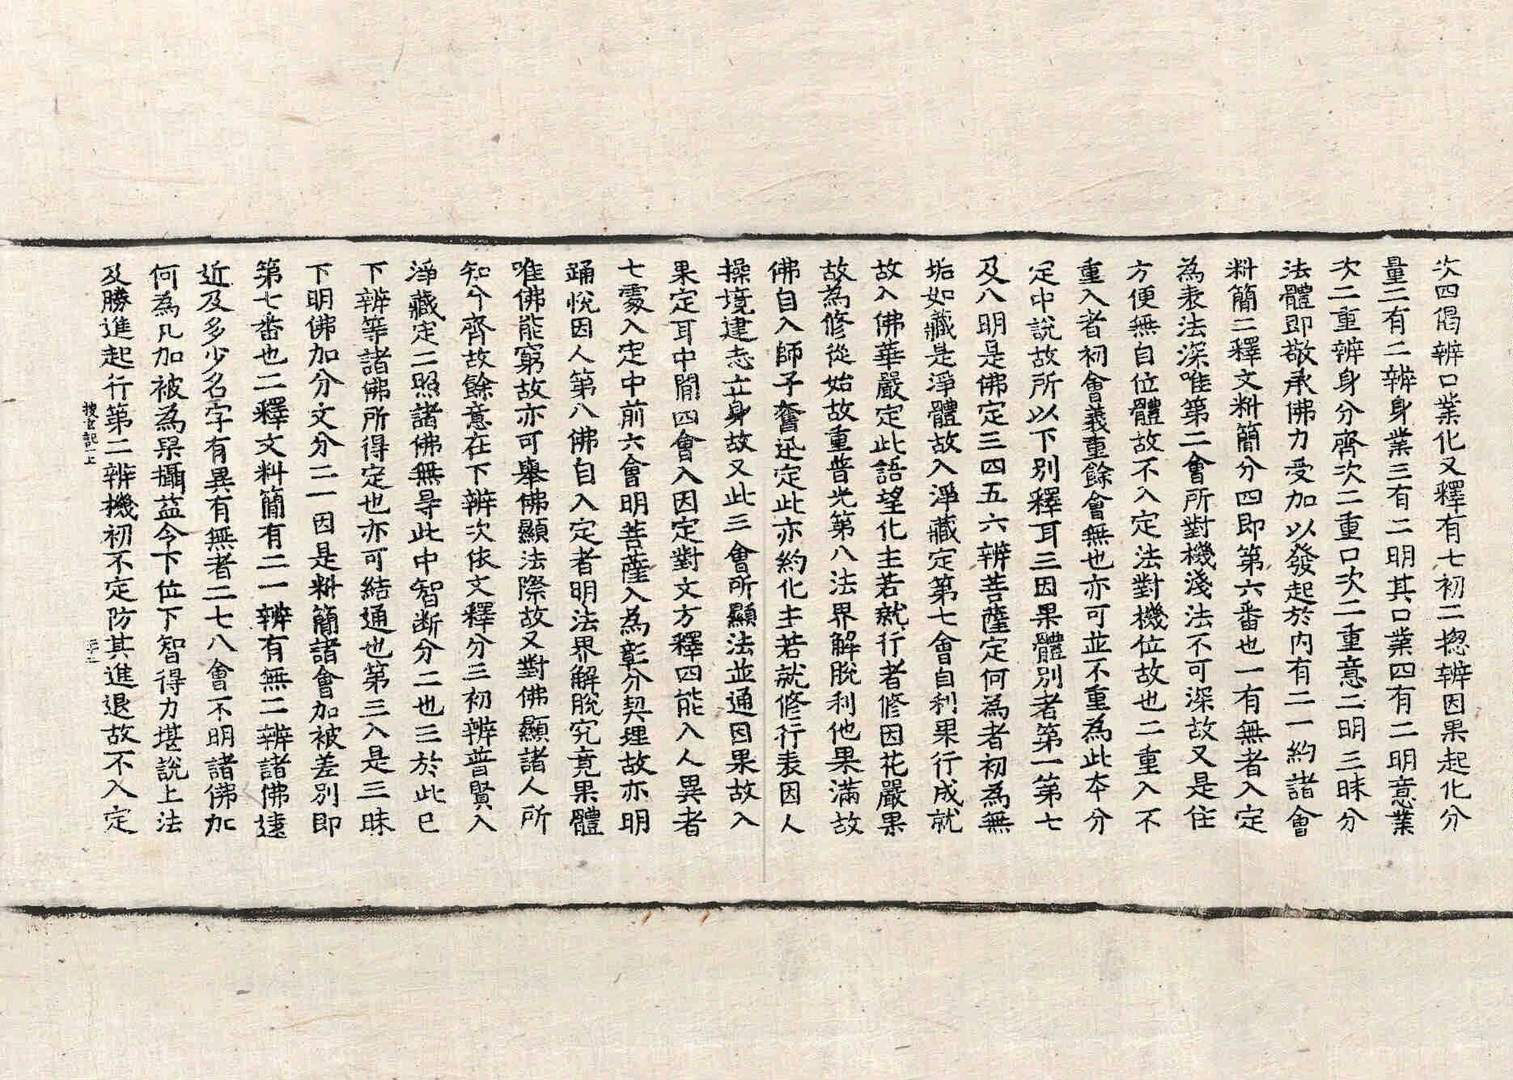 次四偈辨口業化又釋有七初二揔辨因果起化分
量二有二辨身業三有二明其口業四有二明意業
次二重辨身分齊次二重口次二重意二明三昧分
法體即敬承佛力受加以發起於内有二一約諸會
料簡二釋文料簡分四即第六番也一有無者入定
為表法深唯第二會所對機淺法不可深故又是住
方便無自位體故不入定法對機位故也二重入不
重入者初會義重餘會無也亦可並不重為此夲分
定中說故所以下別釋耳三因果體別者第一第七
及八明是佛定三四五六辨菩薩定何為者初為無
垢如藏是淨體故入淨藏定第七會自利果行成就
故入佛華嚴定此語望化主若就行者修因花嚴果
故為修從始故重普光第八法界解脫利他果滿故
佛自入師子奮迅定此亦約化主若就修行表因人
操境建志立身故又此三會所顯法並通因果故入
果定耳中間四會入因定對文方釋四能入人異者
七處入定中前六會明菩薩入為彰分契理故亦明
踊悅因人第八佛自入定者明法界解脫究竟果體
唯佛能窮故亦可舉佛顯法際故又對佛顯諸人所
知分齊故餘意在下辨次依文釋分三初辨普賢入
淨藏定二照諸佛無㝵此中智断分二也三於此已
下辨等諸佛所得定也亦可結通也第三入是三昧
下明佛加分文分二一因是料簡諸會加被差別即
第七番也二釋文料簡有二一辨有無二辨諸佛遠
近及多少名字有異有無者二七八會不明諸佛加
何為凡加被為果攝益令下位下智得力堪說上法
及勝進起行第二辨機初不定防其進退故不入定
搜玄記一上